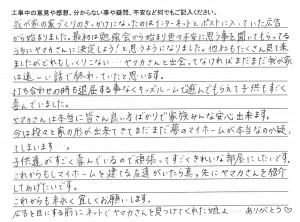 工事中の意見や感想、分からない事や疑問、不安など何でもご記入ください。
我が家の家づくりのきっかけになったのはインターネットとポストに入っていた広告
から始まりました。最初は勉強会から始まり色々不安に思う事も聞いてもらってる
うちにヤマカさんに決定しよう!と思うようになりました。他社もたくさん見て来
ましたがどれもしっくりこない…ヤマカさんと出会ってなければまだまだ我が家
は遠〜い話で終わっていたと思います。
打ち合わせの時も退屈する事なくキッズルームで遊んでもらえて子供もすごく
喜んでいました。
ヤマカさんは本当に皆さん良い方ばかりで家族みんな安心出来ます。
今は段々と家の形が出来てきてまだまだ夢のマイホームが本当なのか疑っ
てしまいます…。
子供達がすごく喜んでいるので頑張ってすごくきれいな部屋にしたいです。
これからもしマイホームを建てる友達がいたら真っ先にヤマカさんを紹介
してあげたいです。
これからも末永く宜しくお願いします。
広告を目にする前にネットでヤマカさんを見つけてくれた娘よ…ありがとう♡